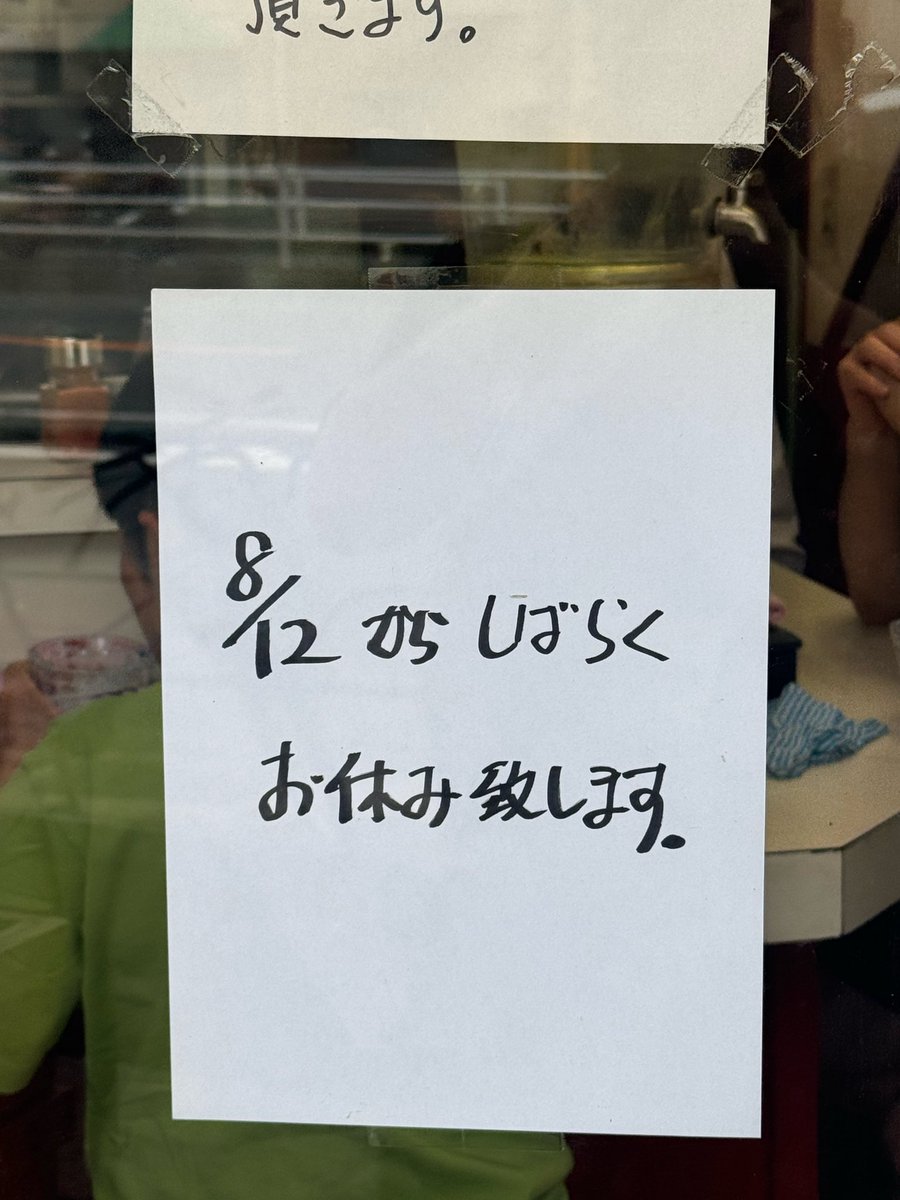 頂きます。
8/12 から しばらく
お休み致します。